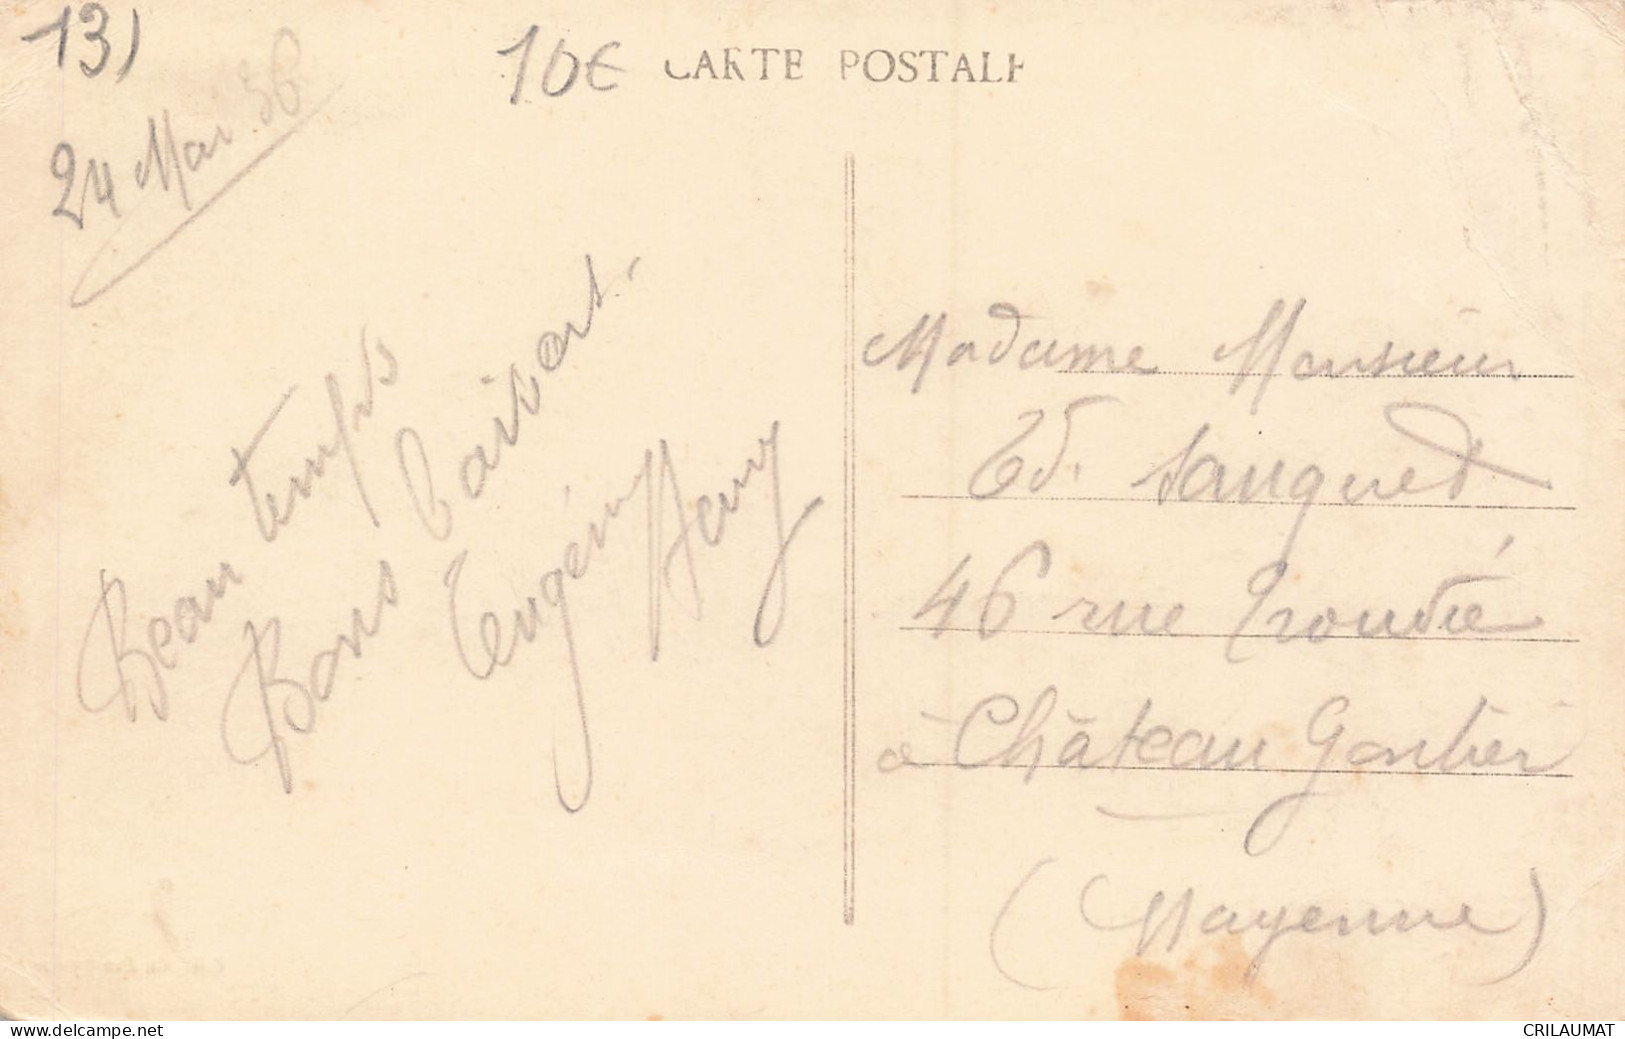 13)
10€
CARTE POSTALE
24 Mai 36
Beau temps
Bons baisers.
Eugénie Henry
Madame Monsieur
Ed. Sauquet
46 rue Trouvée
à Château Gontier
(Mayenne)
www.delcampe.net
CRILAUMAT